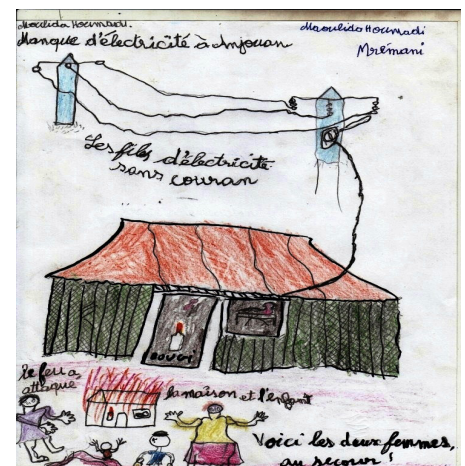 Maoulida Houmadi.
Maoulida Houmadi
Mrémani
Manque d'électricité à Anjouan
Les fils d'électricité
sans couran
BOUGI
le feu a
attaque
la maison et l'enfant
Voici les deux femmes,
au secour !